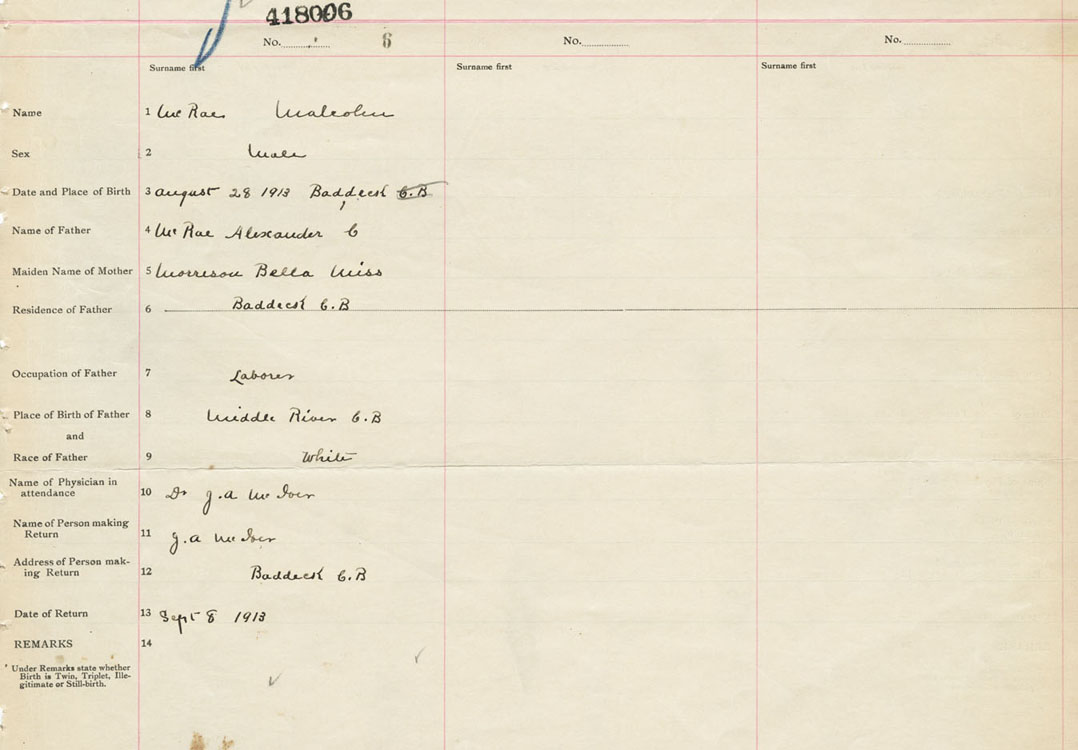 418006
No. 6 No. No.
Surname first Surname first Surname first
Name 1 McRae Malcolm
Sex 2 Male
Date and Place of Birth 3 August 28 1913 Baddeck C.B
Name of Father 4 McRae Alexander C
Maiden Name of Mother 5 Morrison Bella Miss
Residence of Father 6 Baddeck C.B
Occupation of Father 7 Laborer
Place of Birth of Father 8 Middle River C.B
and
Race of Father 9 White
Name of Physician in
attendance 10 Dr J.A McIver
Name of Person making
Return 11 J.A McIver
Address of Person mak-
ing Return 12 Baddeck C.B
Date of Return 13 Sept 8 1913
REMARKS 14
Under Remarks state whether
Birth is Twin, Triplet, Ille-
gitimate or Still-birth.